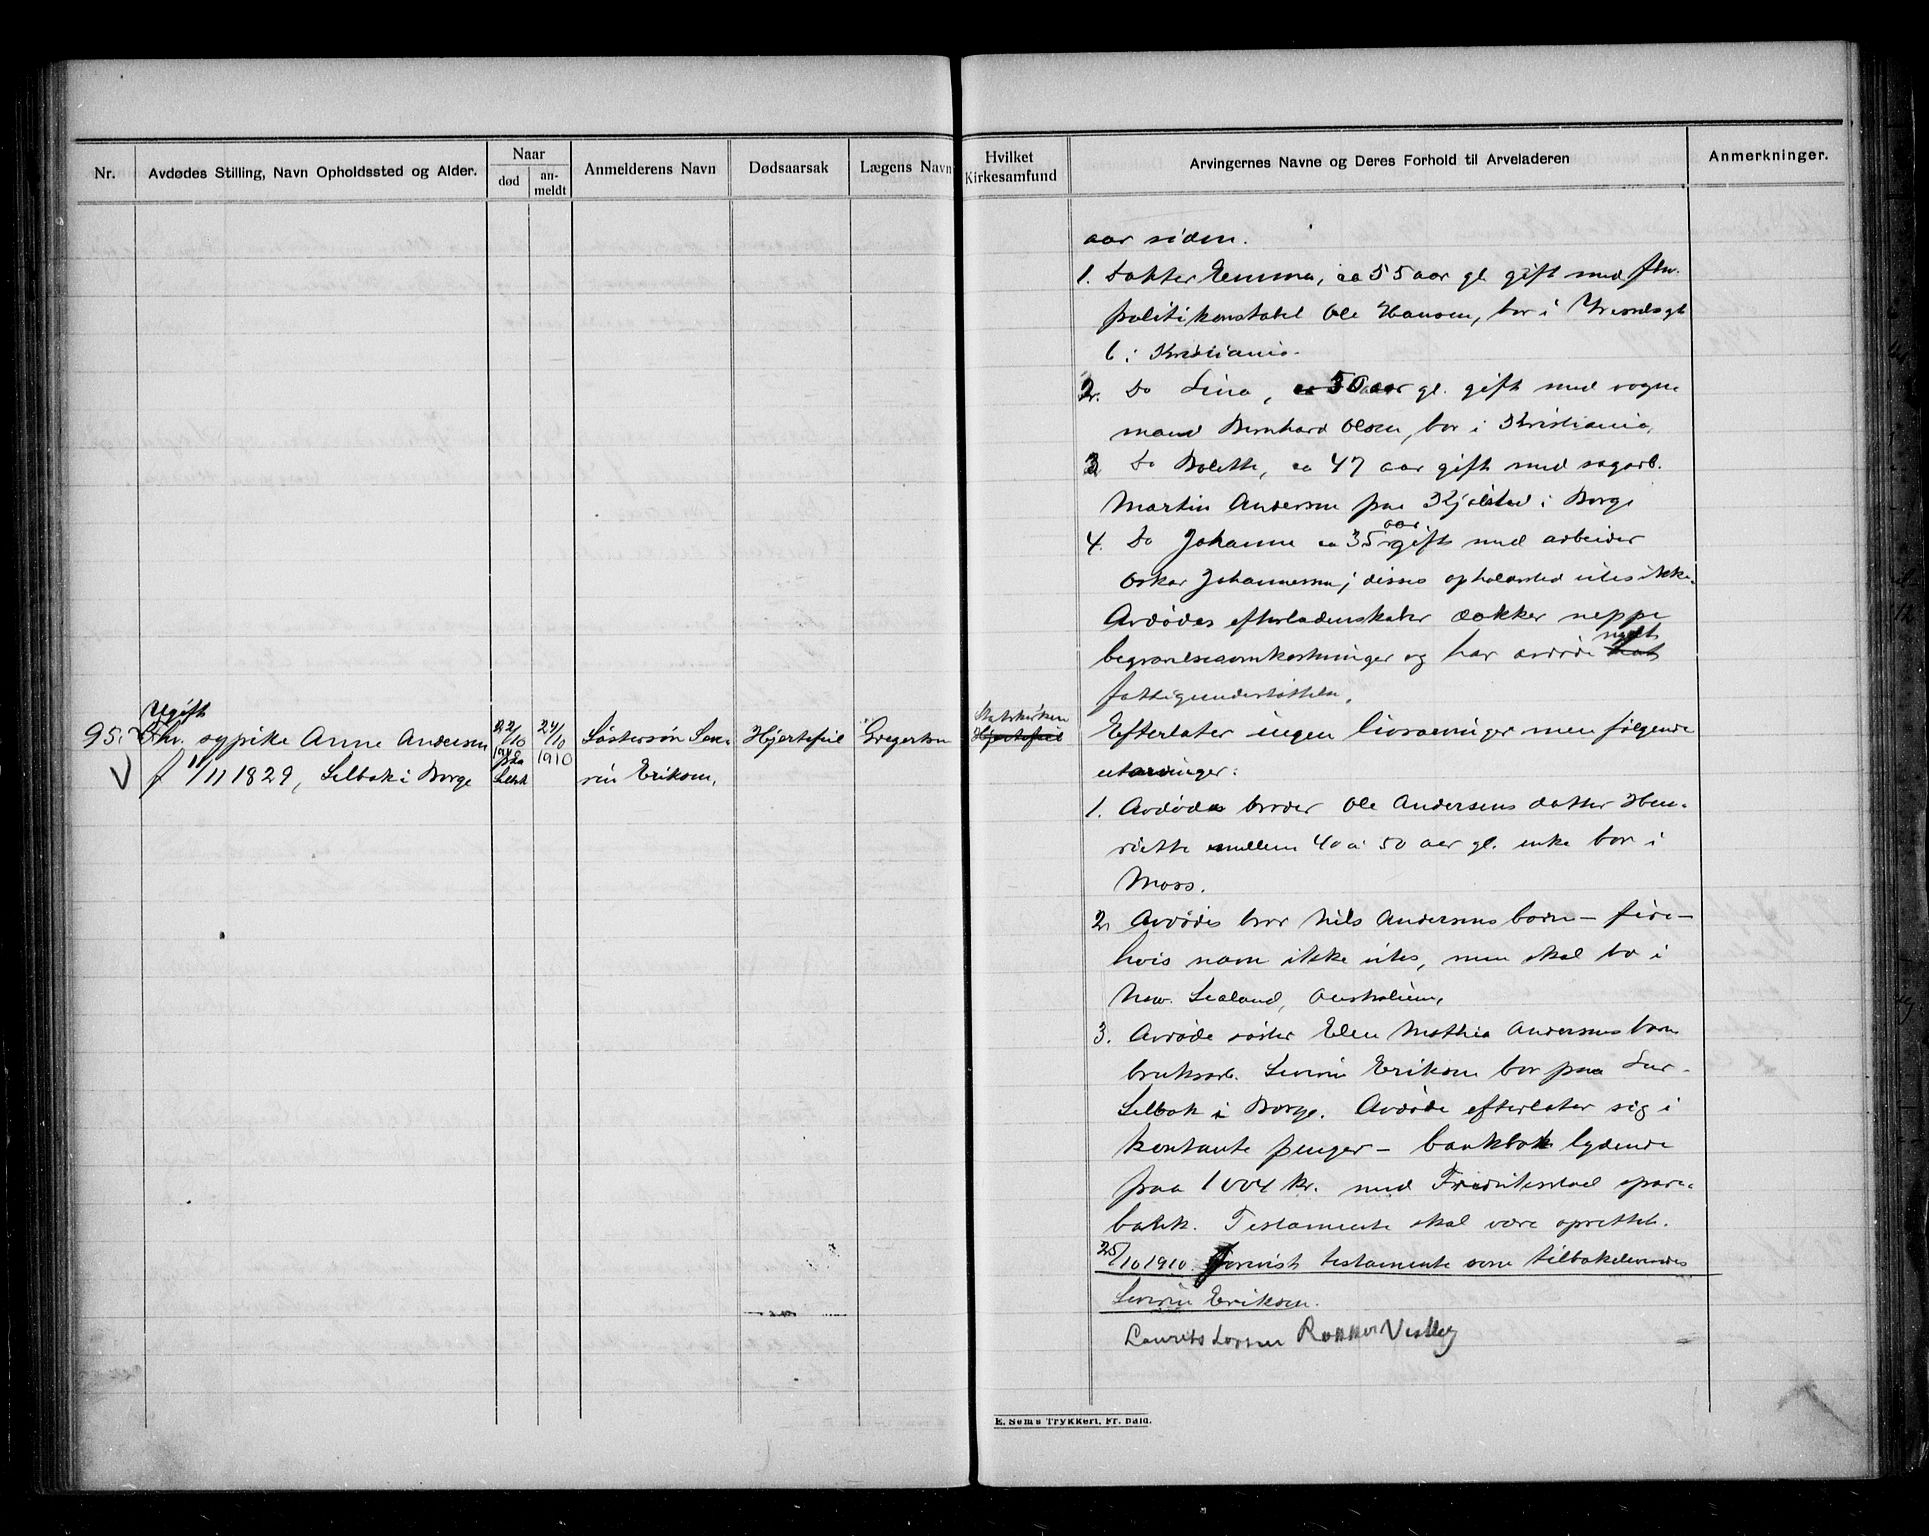 Nr.
Avdødes Stilling, Navn Opholdssted og Alder.
Naar
død
an-
meldt
Anmelderens Navn
Dødsaarsak
Lægens Navn
Hvilket
Kirkesamfund
Arvingernes Navne og Deres Forhold til Arveladeren
Anmerkninger.
95.
Ugift
fhv. sypike Anne Andersen
f 11/11 1829, Selbak i Borge
22/10
1910
paa
Selbak
24/10
1910
Søstersøn Seve-
rin Eriksen,
Hjertefeil
Gregertsen
Statskirken
Hjertefeil
aar siden.
1. Datter Emma, ca 55 aar gl gift med fhv.
politikonstabel Ole Hansen, bor i
6 i Kristiania.
2. Do Lina, ca 50 aar gl. gift med vogn-
mand Bernhard Olsen, bor i Kristiania,
3. Do Bolette, ca 47 aar gift med sagarb.
Martin Andersen paa Kjølstad i Borge
4. Do Johanne ca 35 aar gift med arbeider
Oskar Johannesen, disses opholdssted vites ikke.
Avdødes efterladenskaber dækker neppe
begravelsesomkostninger og har avdøde nydt hat
fattigunderstøttelse.
Efterlater ingen livsarvinger men følgende
utarvinger:
1. Avdødes broder Ole Andersens datter Hen-
riette mellem 40 a 50 aar gl. enke bor i
Moss.
2. Avdødes bror Nils Andersens barn – fire –
hvis navn ikke vites, men skal bo i
New. Sealand, Australien,
3. Avdøde søster Elen Mathia Andersens barn
bruksarb. Severin Eriksen bor paa
Selbak i Borge. Avdøde efterlater sig i
kontante penger – bankbok lydende
paa 1004 kr. med Fredrikstad spare-
bank. Testamente skal være oprettet.
25/10 1910. Forevist testamente som tilbakeleveredes
Severin Eriksen.
Laurits Larsen Rokke Vestby
E. Sems Trykkeri, Fr. hald.